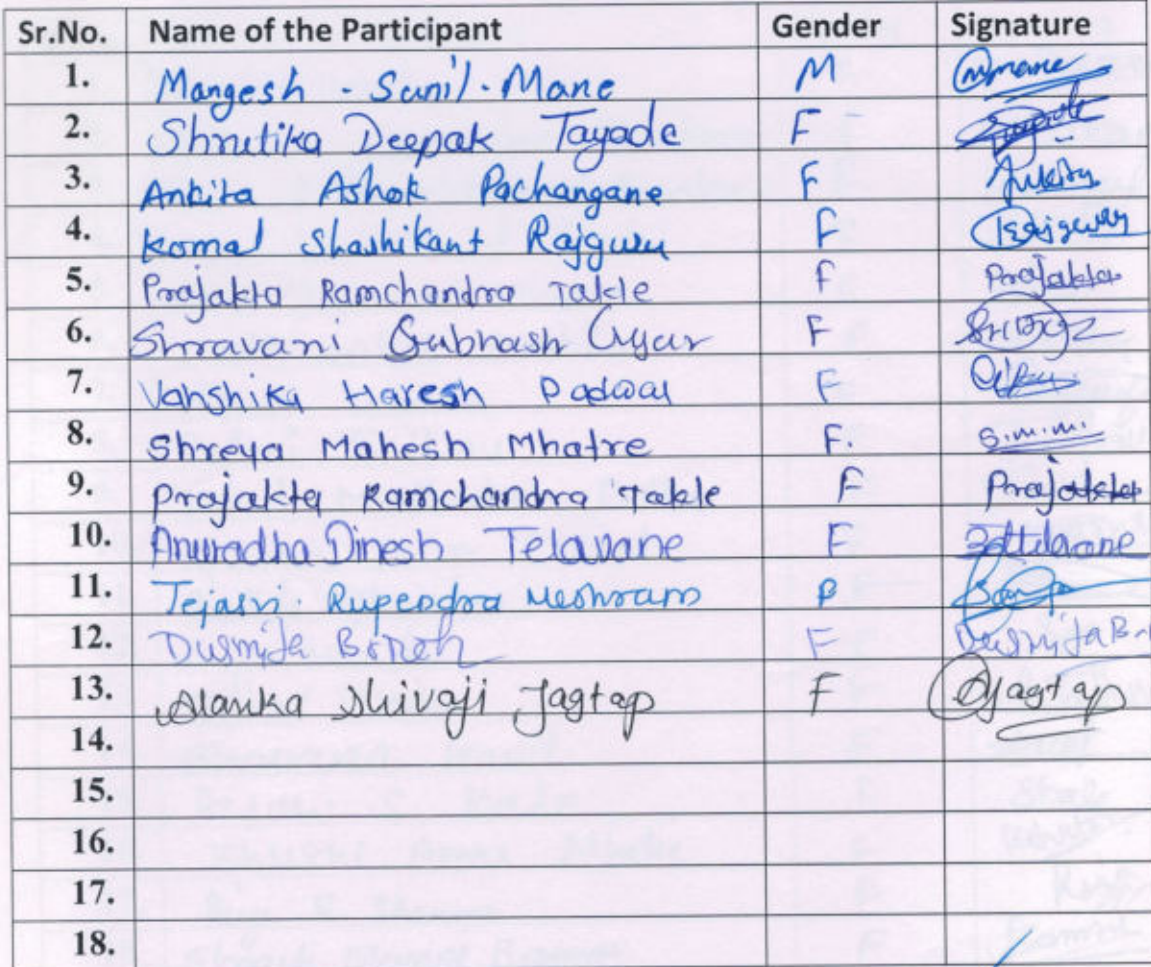 Sr.No. Name of the Participant Gender Signature
1. Mangesh - Sunil - Mane M mmane
2. Shrutika Deepak Tayade F
3. Ankita Ashok Pachangane F Ankita
4. Komal Shashikant Rajguru F Rajguru
5. Prajakta Ramchandra Takle F Prajakta
6. Shravani Subhash F
7. Vanshika Haresh Padwal F
8. Shreya Mahesh Mhatre F. S.m.m.
9. Prajakta Ramchandra Takle F Prajakta
10. Anuradha Dinesh Telavane F
11. Tejasvi. Rupendra Meshram
12. F
13. Shivaji Jagtap F Jagtap
14.
15.
16.
17.
18.